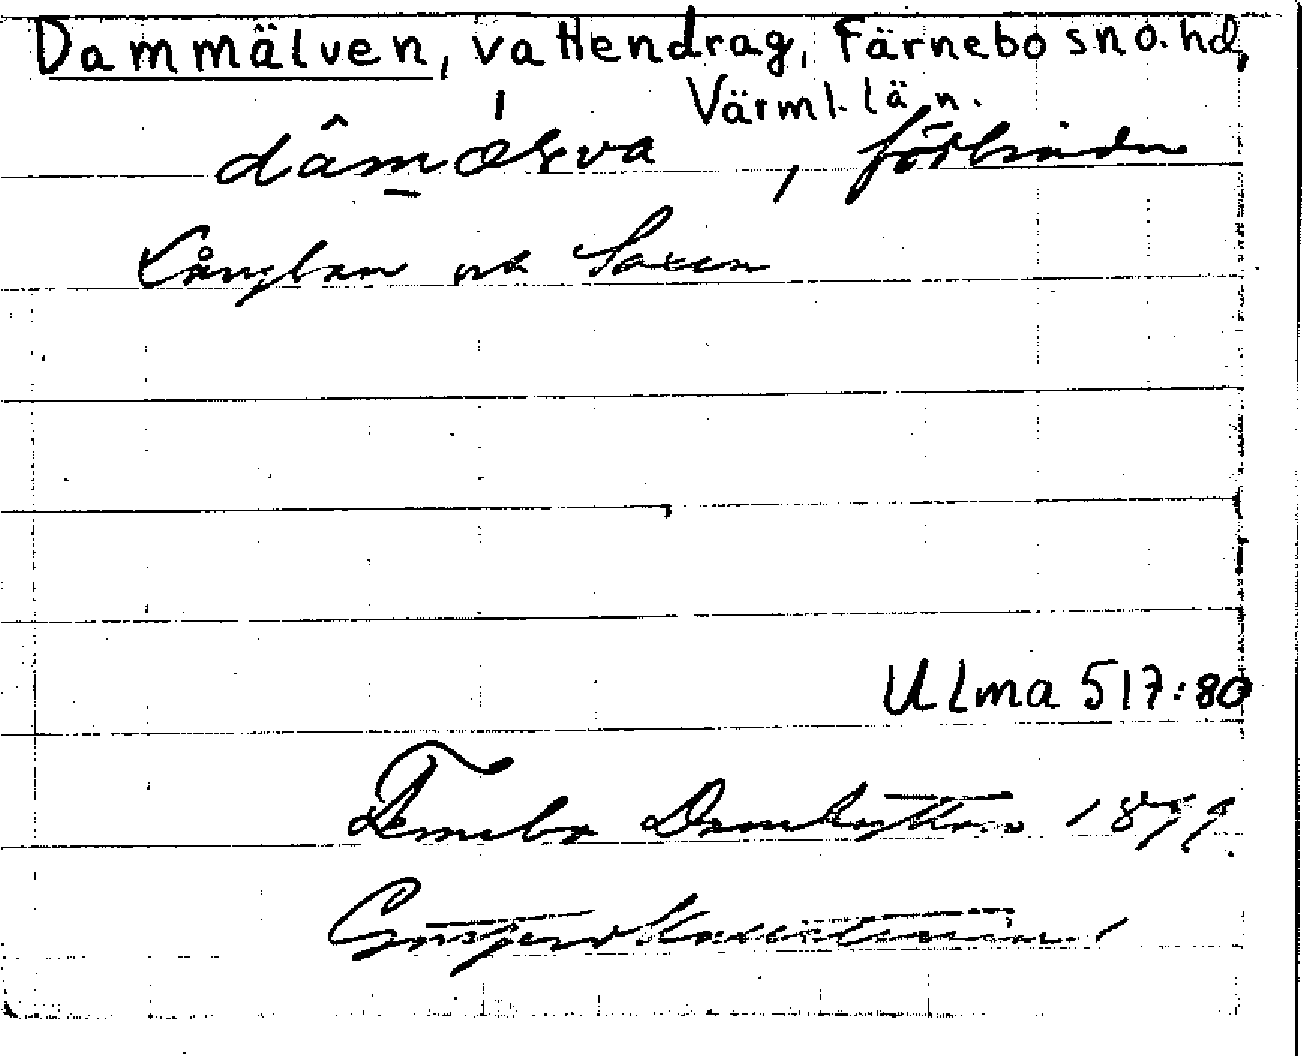 Dammälven, vattendrag, Färnebo sn o. hd,
Värml. län.
dâmælva, förbinder
Långban och Saxen
ULma 517:80
Fernebo Damhyttan 1899.